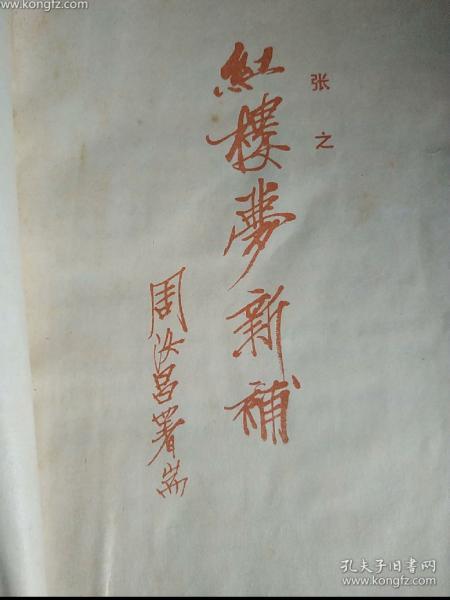 https://
www.kongfz.com
张之
紅樓夢新補
周汝昌署耑
孔夫子旧书网
www.kongfz.com